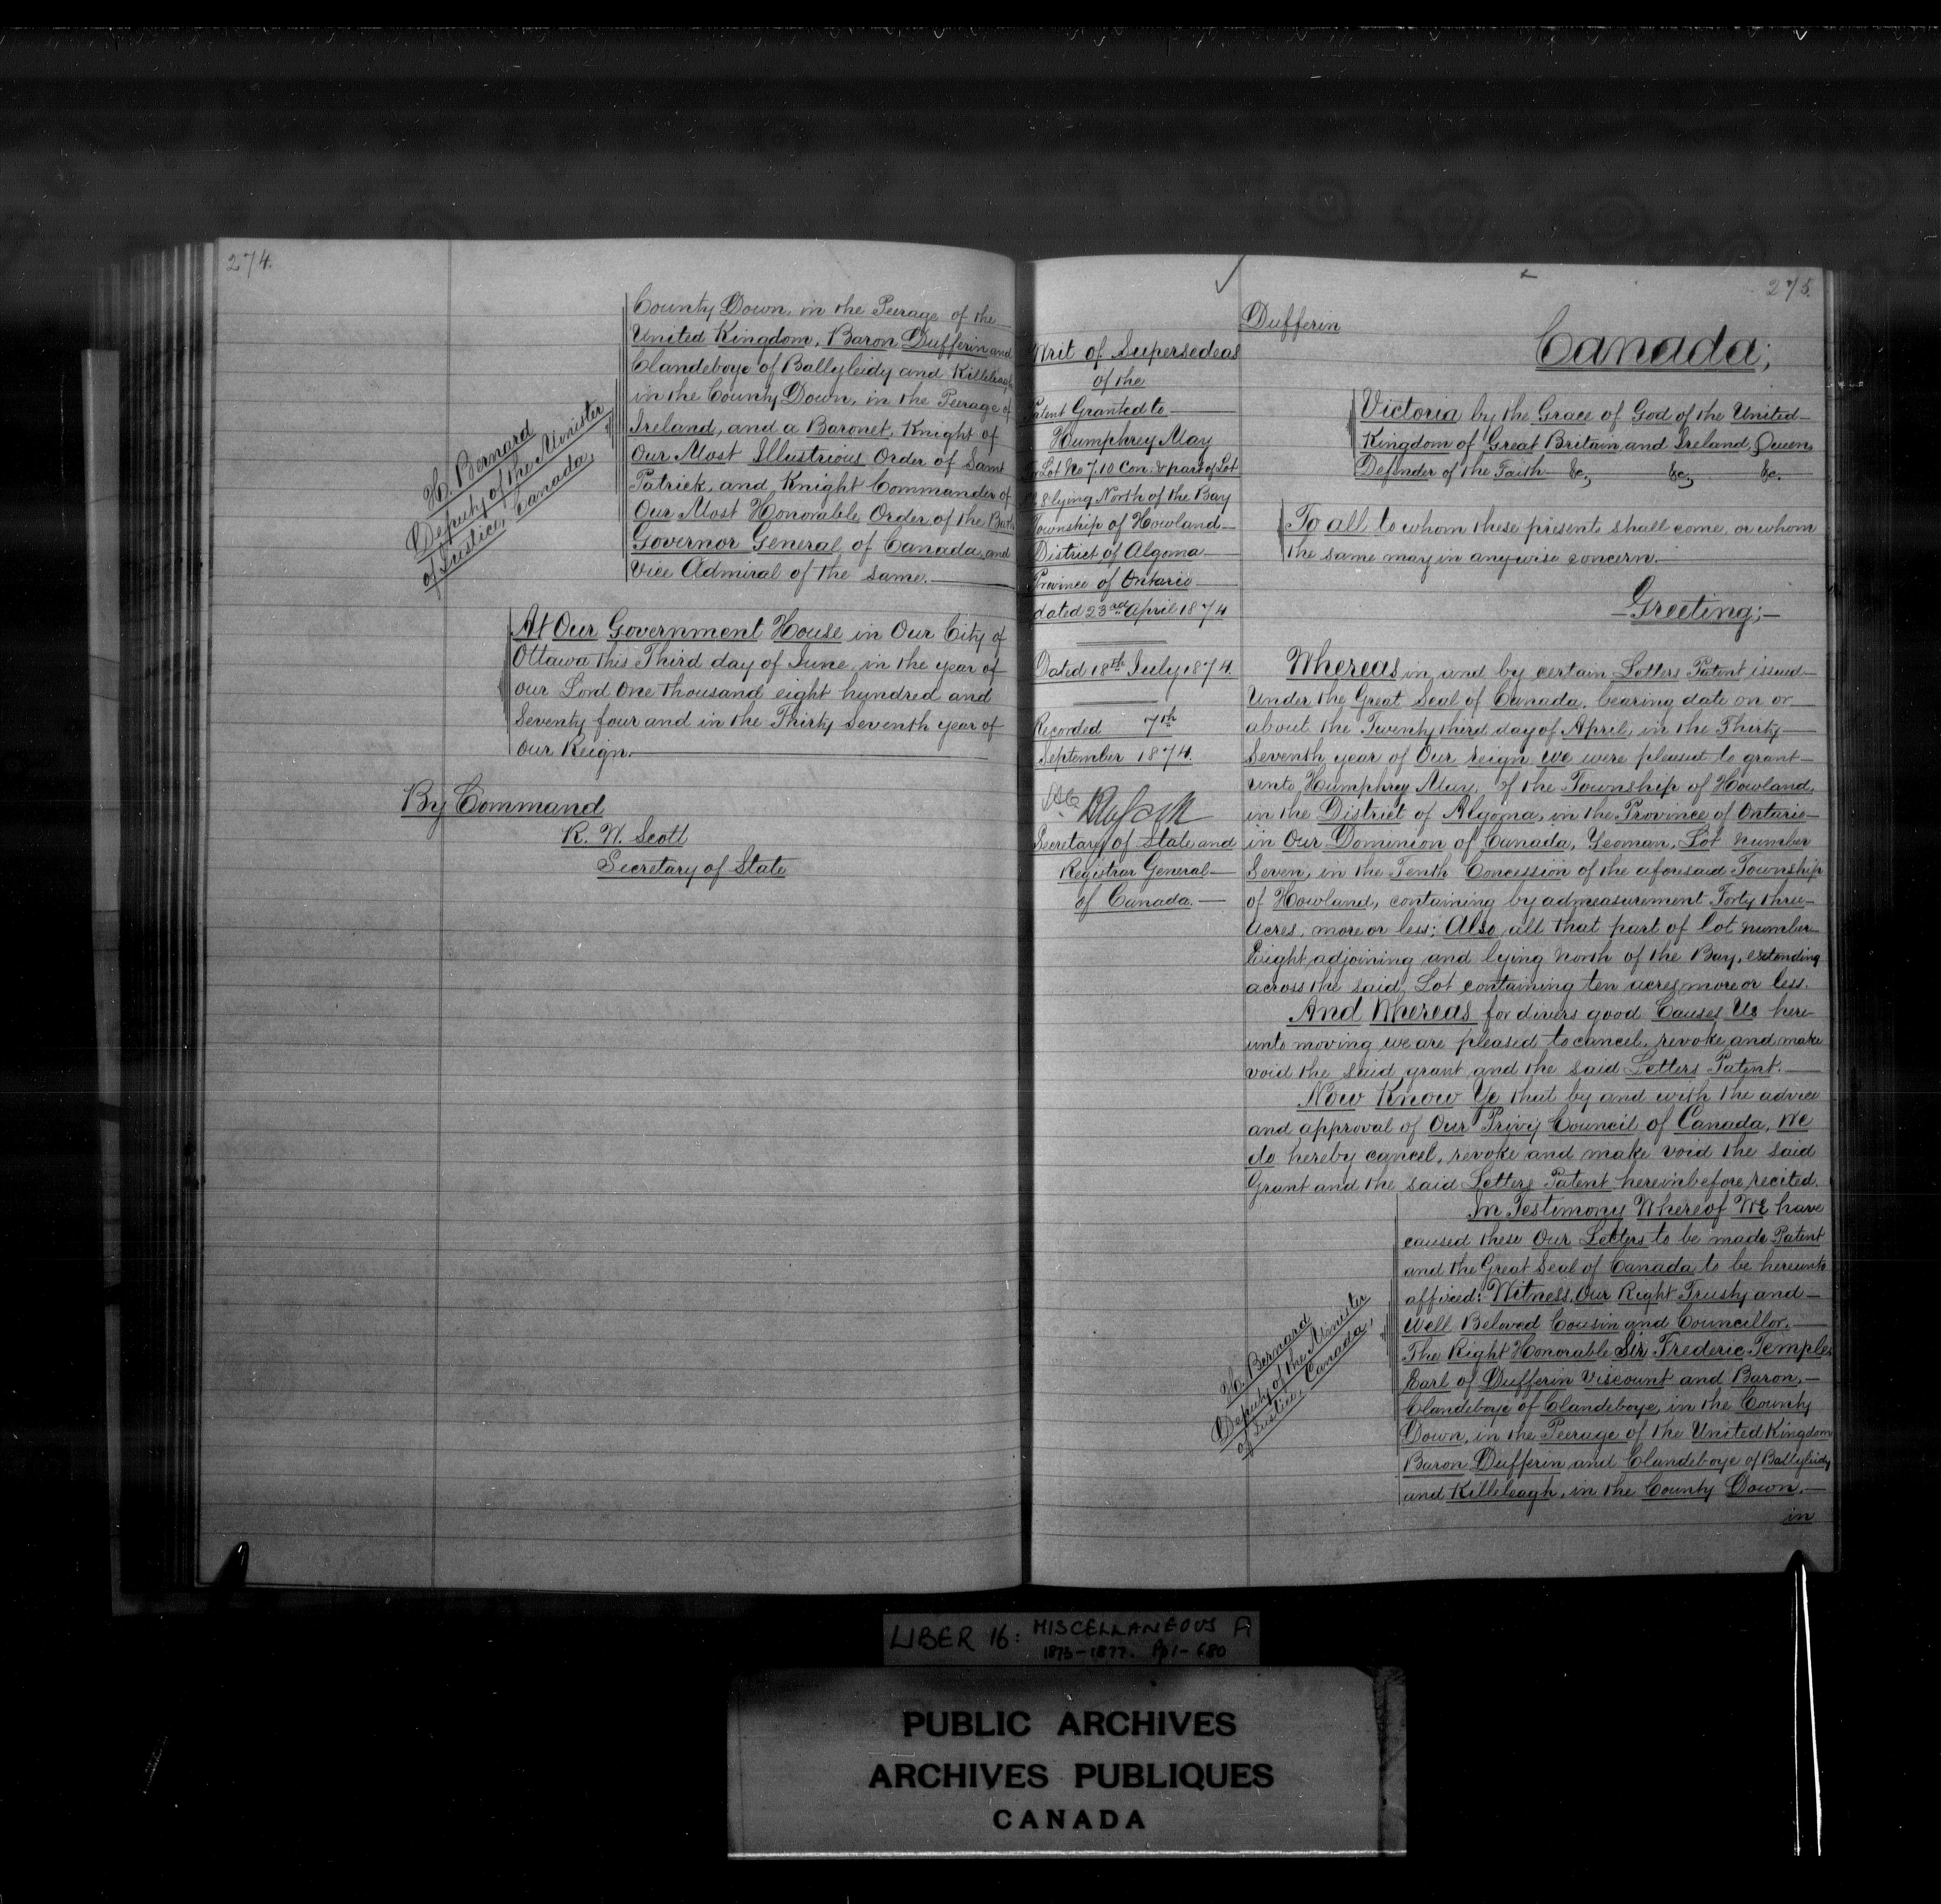 274.
County Down, in the Peerage of the
United Kingdom, Baron Dufferin and
Clandeboye of Ballyleidy and Killeleagh
in the County Down, in the Peerage of
Ireland, and a Baronet, Knight of
Our Most Illustrious Order of Saint
Patrick, and Knight Commander of
Our Most Honorable Order of the Bath
Governor General of Canada, and
Vice Admiral of the same.
H. Bernard
Deputy of the Minister
of Justice, Canada,
At Our Government House in Our City of
Ottawa this Third day of June, in the year of
our Lord One thousand eight hundred and
Seventy four and in the Thirty Seventh year of
Our Reign.
By Command
R. W. Scott
Secretary of State
275.
Dufferin
Writ of Supersedeas
of the
Patent Granted to
Humphrey May
Lot No 7.10 Con. & part of Lot
8 lying North of the Bay
Township of Howland
District of Algoma
Province of Ontario
dated 23rd April 1874
Dated 18th July 1874.
Recorded 7th
September 1874.
Secretary of State and
Registrar General
of Canada.
Canada;
Victoria by the Grace of God of the United
Kingdom of Great Britain and Ireland Queen
Defender of the Faith &c, &c, &c.
To all to whom these present shall come, or whom
the same may in anywise concern.
Greeting;
Whereas in and by certain Letters Patent issued
Under the Great Seal of Canada, bearing date on or
about the Twenty third day of April, in the Thirty
Seventh year of Our reign we were pleased to grant
unto Humphrey May, of the Township of Howland,
in the District of Algoma, in the Province of Ontario
in Our Dominion of Canada, Yeoman, Lot number
Seven, in the Tenth Concession of the aforesaid Township
of Howland, containing by admeasurement Forty three
Acres, more or less; Also, all that part of lot number
Eight, adjoining and lying north of the Bay, extending
across the said, Lot containing ten acres, more or less.
And Whereas for divers good Causes Us here
unto moving we are pleased to cancel, revoke, and make
void the said grant and the said Letters Patent.
Now Know Ye that by and with the advice
and approval of Our Privy Council of Canada, We
do hereby cancel, revoke and make void the said
Grant and the said Letters Patent hereinbefore recited.
In Testimony Whereof We have
caused these Our Letters to be made Patent
and the Great Seal of Canada to be hereunto
affixed: Witness, Our Right Trusty and
Well Beloved Cousin and Councillor,
The Right Honorable Sir Frederic Temple,
Earl of Dufferin Viscount and Baron,
Clandeboye of Clandeboye, in the County
Down, in the Peerage of the United Kingdom
Baron Dufferin and Clandeboye of Ballyleidy
and Killeleagh, in the County Down,
in
H. Bernard
Deputy of the Minister
of Justice, Canada,
LIBER 16: MISCELLANEOUS A
1873-1877. Pp 1-680
PUBLIC ARCHIVES
ARCHIVES PUBLIQUES
CANADA